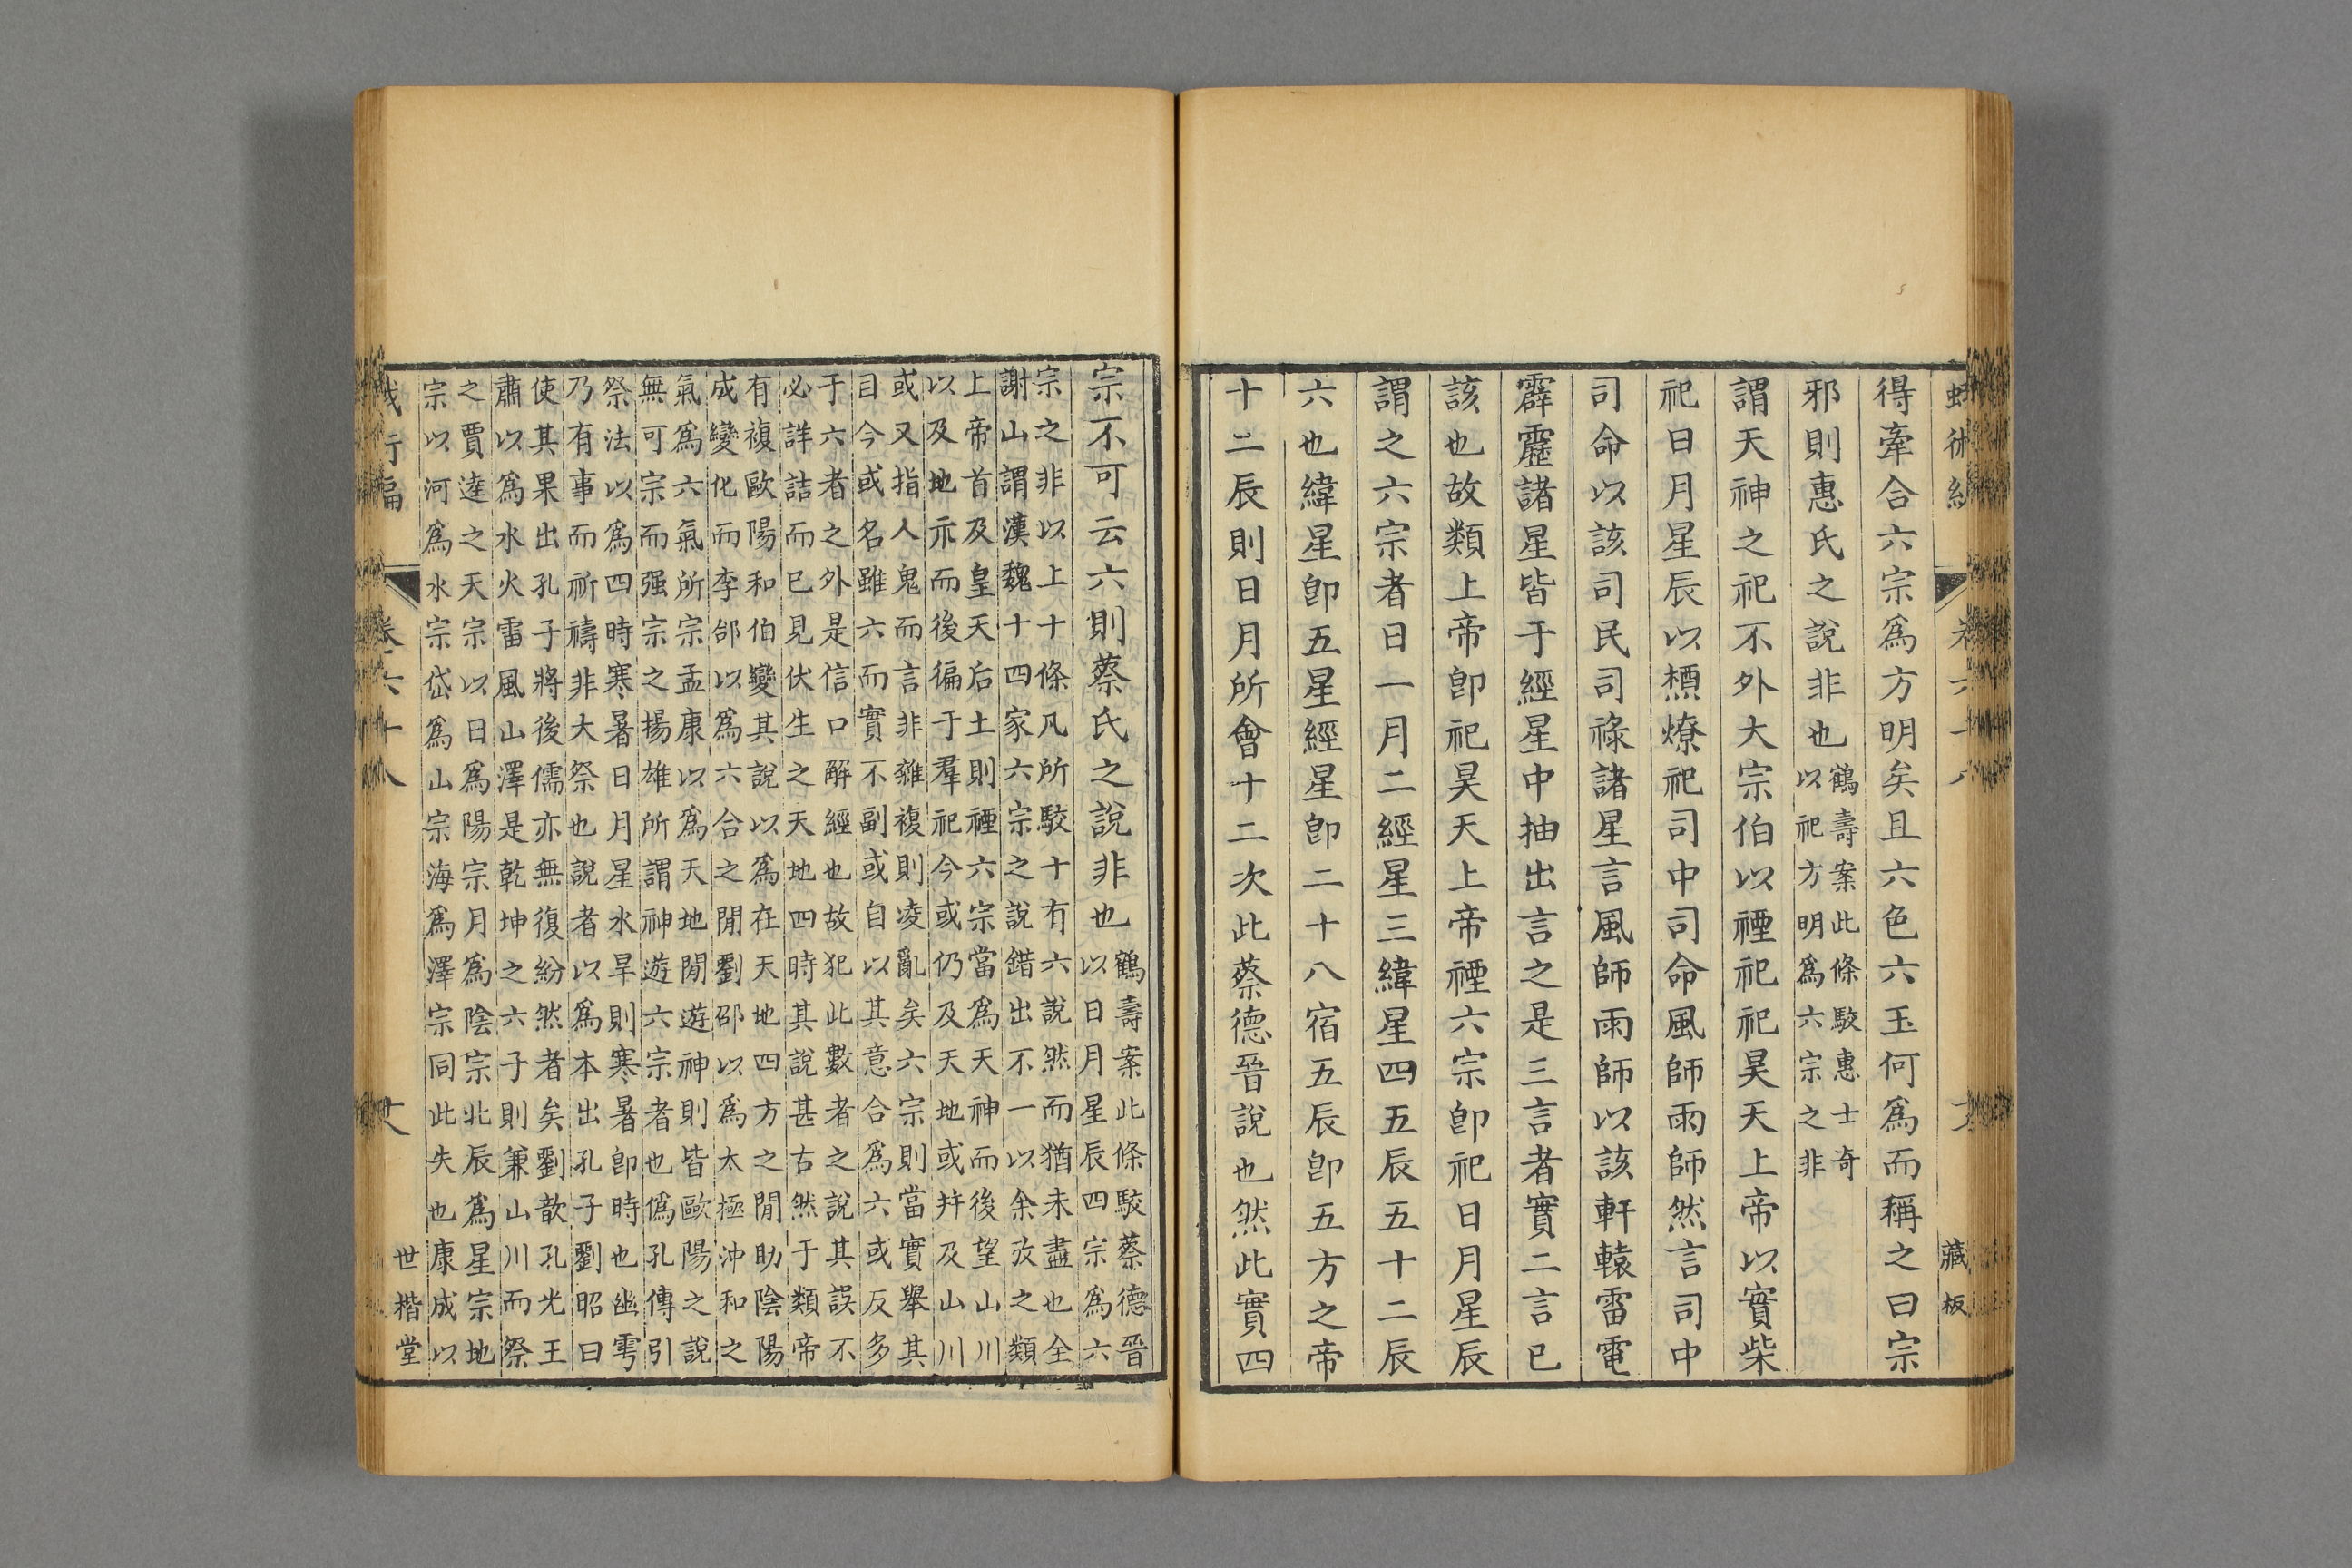 蛾術編
藏板
得牽合六宗爲方明矣且六色六玉何爲而稱之曰宗
邪則惠氏之說非也鶴壽案此條駮惠士奇
以祀方明爲六宗之非
謂天神之祀不外大宗伯以禋祀祀昊天上帝以實柴
祀日月星辰以槱燎祀司中司命風師雨師然言司中
司命以該司民司祿諸星言風師雨師以該軒轅雷電
霹靂諸星皆于經星中抽出言之是三言者實二言已
該也故類上帝卽祀昊天上帝禋六宗卽祀日月星辰
謂之六宗者日一月二經星三緯星四五辰五十二辰
六也緯星卽五星經星卽二十八宿五辰卽五方之帝
十二辰則日月所會十二次此蔡德晉說也然此實四
宗不可云六則蔡氏之說非也鶴壽案此條駮蔡德晉
以日月星辰四宗爲六
宗之非以上十條凡所駮十有六說然而猶未盡也全
謝山謂漢魏十四家六宗之說錯出不一以余攷之類
上帝首及皇天后土則禋六宗當爲天神而後望山川
以及地示而後徧于羣祀今或仍及天地或幷及山川
或又指人鬼而言非雜複則凌亂矣六宗則當實舉其
目今或名雖六而實不副或自以其意合爲六或反多
于六者之外是信口解經也故犯此數者之說其誤不
必詳詰而已見伏生之天地四時其說甚古然于類帝
有複歐陽和伯變其說以爲在天地四方之閒助陰陽
成變化而李郃以爲六合之閒劉邵以爲太極沖和之
氣爲六氣所宗孟康以爲天地閒遊神則皆歐陽之說
無可宗而强宗之揚雄所謂神遊六宗者也僞孔傳引
祭法以爲四時寒暑日月星水旱則寒暑卽時也幽雩
乃有事而祈禱非大祭也說者以爲本出孔子劉昭曰
使其果出孔子將後儒亦無復紛然者矣劉歆孔光王
肅以爲水火雷風山澤是乾坤之六子則兼山川而祭
之賈逵之天宗以日爲陽宗月爲陰宗北辰爲星宗地
宗以河爲水宗岱爲山宗海爲澤宗同此失也康成以
卷六十八
世楷堂